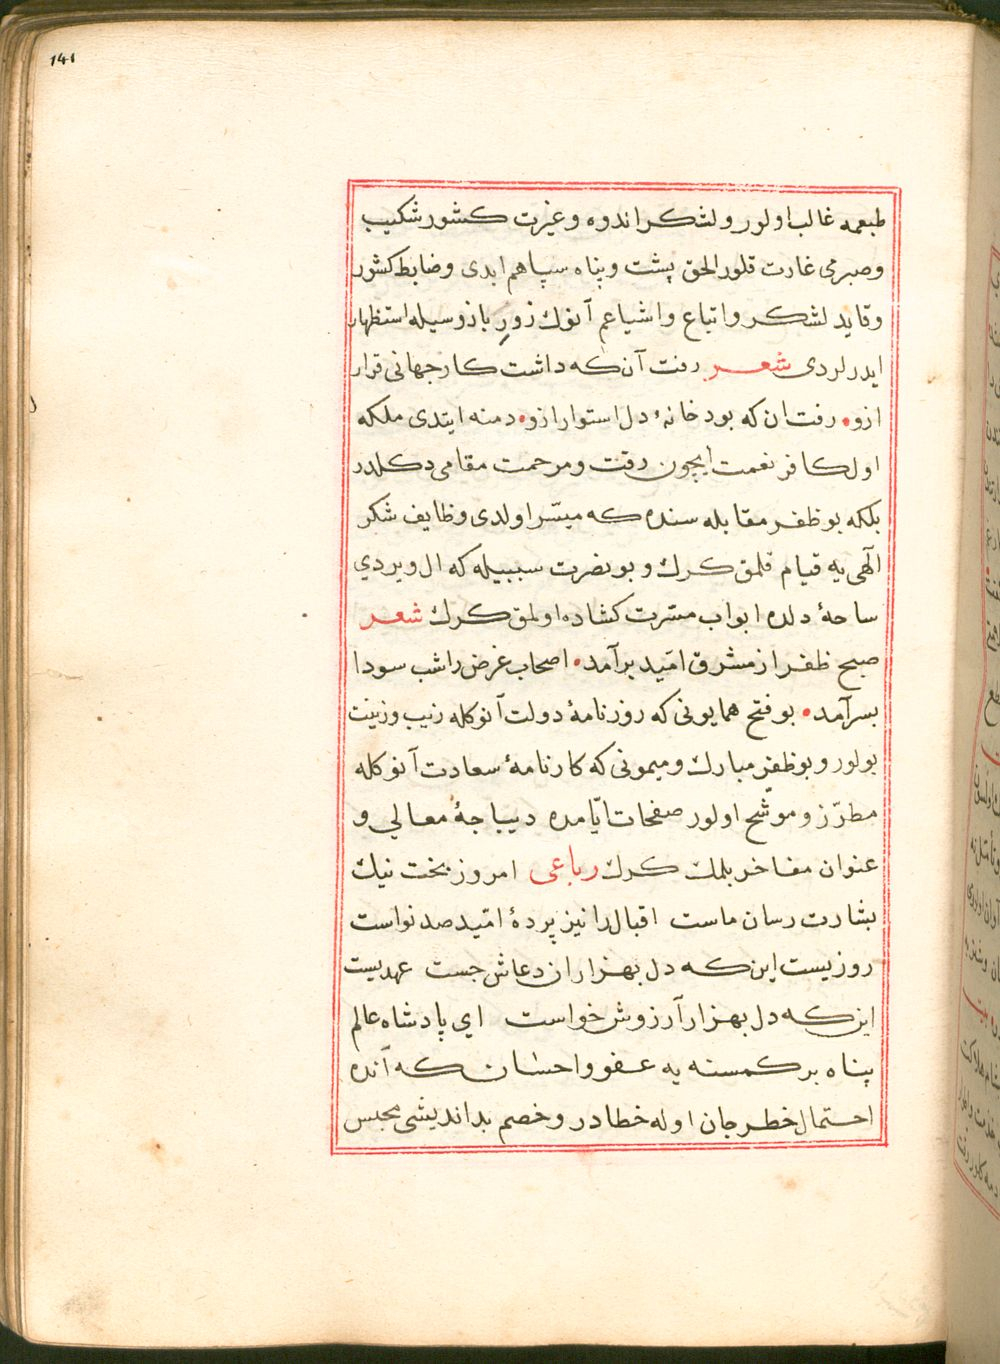 141
طبعمه غالب اولور ولشكر اندوه وغيرت كشور شكيب
وصبرمى غارت قلور الحق پشت وپناه سپاهم ايدى وضابط كشور
وقايد لشكر واتباع واشياعم آنوك زور بازوسيله استظهار
ايدرلردى شعر رفت آن كه داشت كار جهانى قرار
ازو • رفت ان كه بود خانهٔ دل استوار ازو • دمنه ايتدى ملكه
اول كافر نعمت ايچون رقت ومرحمت مقامى دكلدر
بلكه بو ظفر مقابله سنده كه ميسّر اولدى وظايف شكر
آلهى يه قيام قلمق كرك وبو نصرت سببيله كه ال ويردي
ساحهٔ دلده ابواب مسّرت كشاده اولمق كرك شعر
صبح ظفر از مشرق اميّد برآمد • اصحاب غرض را شب سودا
بسرآمد • بو فتح همايونى كه روزنامهٔ دولت آنوكله زيب وزينت
بولور وبو ظفر مبارك وميمونى كه كارنامهٔ سعادت آنوكله
مطرّز وموشّح اولور صفحات ايّامده ديباجهٔ معالي و
عنوان مفاخر بلمك كرك رباعى امروز بخت نيك
بشارت رسان ماست اقبال را نيز پردهٔ اميّد صد نواست
روزيست اين كه دل بهزاران دعاش جست عهديست
اين كه دل بهزار آرزوش خواست اي پادشاه عالم
پناه بر كمسنه يه عفو واحسان كه آنده
احتمال خطر جان اوله خطادر وخصم بدانديشى محبس